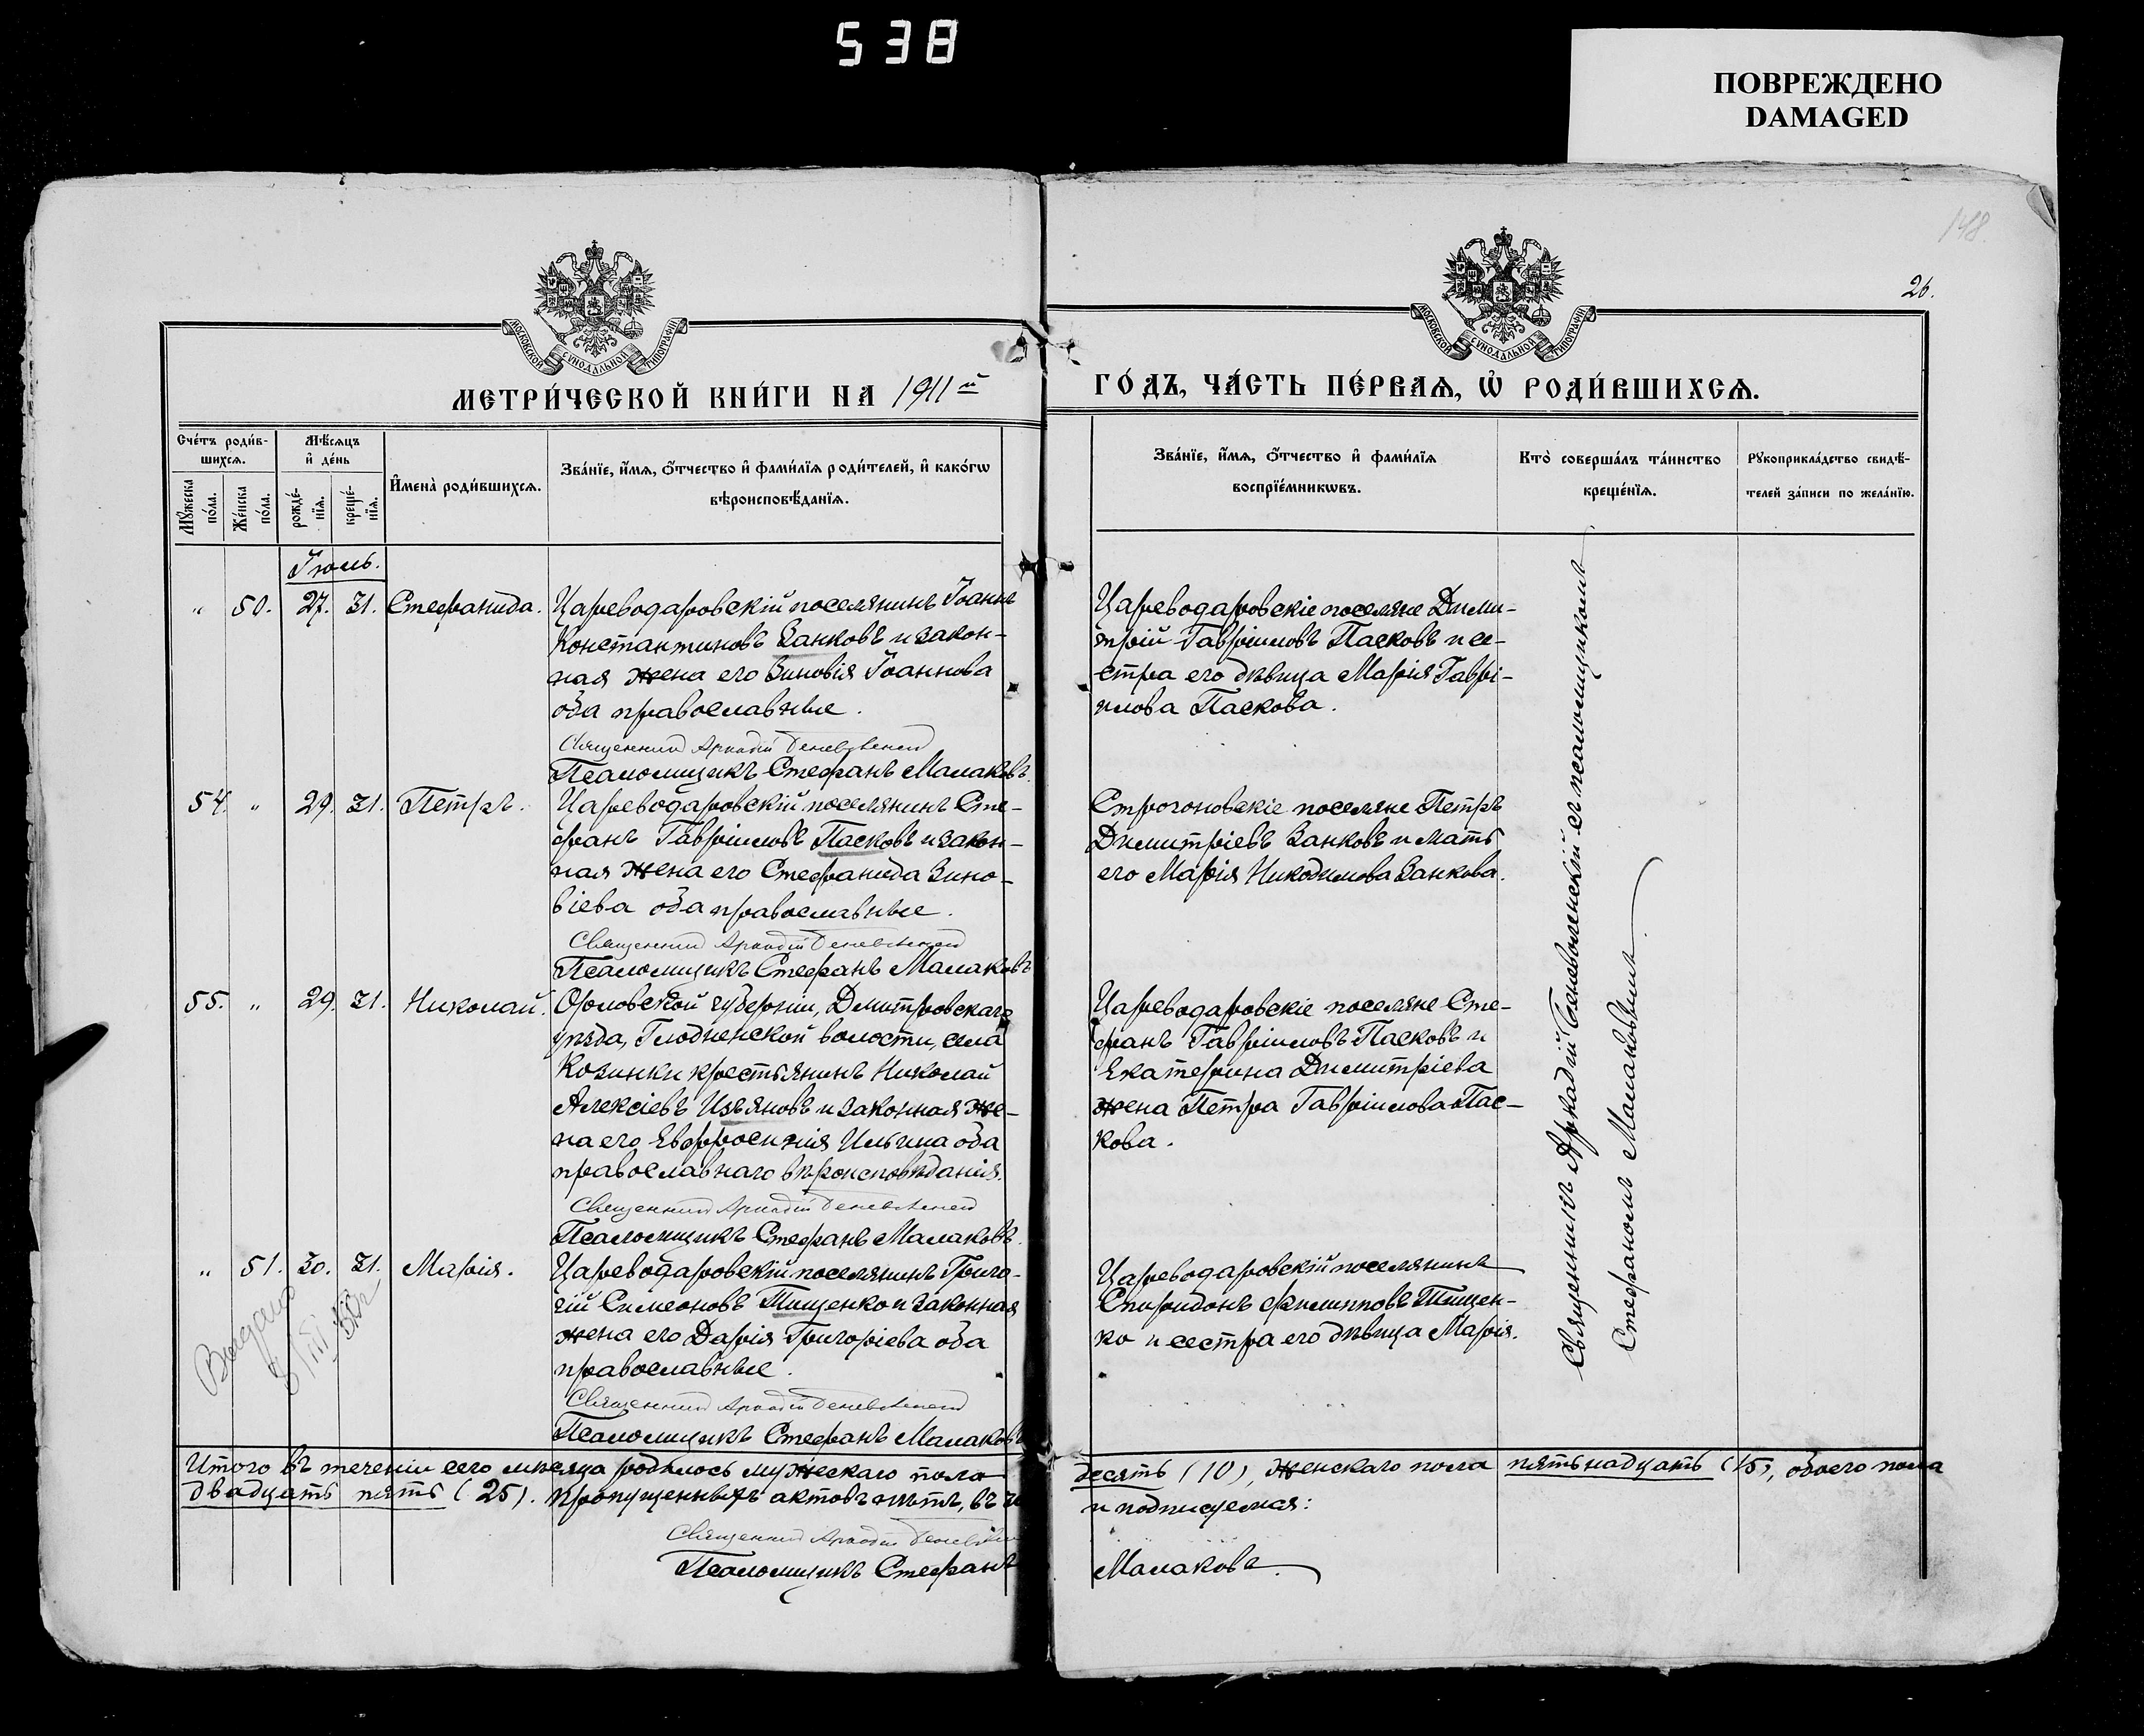 538
ПОВРЕЖДЕНО
DAMAGED
148.
26.
МОСКОВСКОЙ СѴНОДАЛЬНОЙ ТИПОГРАФІИ
МОСКОВСКОЙ СѴНОДАЛЬНОЙ ТИПОГРАФІИ
МЕТРИ́ЧЕСКОЙ КНИ́ГИ НА 1911й
ГО́ДЪ, ЧА́СТЬ ПЕ́РВАѦ, Ѡ҆ РОДИ́ВШИХСѦ.
Сче́тъ роди́в-
шихсѧ.
Мꙋ́жеска по́ла.
Же́нска по́ла.
Мѣ́сѧцъ
и҆ де́нь
рожде́-
нїѧ.
креще́-
нїѧ.
И҆мена̀ роди́вшихсѧ.
Зва́нїе, и҆́мѧ, ѻ҆́тчество и҆ фами́лїѧ роди́телей, и҆ како́гѡ
вѣроисповѣ́данїѧ.
Зва́нїе, и҆́мѧ, ѻ҆́тчество и҆ фами́лїѧ
воспрїе́мникѡвъ.
Кто̀ соверша́лъ та́инство
креще́нїѧ.
Рꙋкоприкла́дство свидѣ́-
телей за́писи по жела́нїю.
Іюль.
" 50. 27. 31. Стефанида. Цареводаровскій поселянинъ Іоаннъ
Константиновъ Занковъ и закон-
ная жена его Зиновія Іоаннова
оба православные.
Священникъ Аркадій Беневоленскій
Псаломщикъ Стефанъ Малаковъ.
Цареводаровскіе поселяне Дими-
трій Гавріиловъ Пасковъ и се-
стра его дѣвица Марія Гаврі-
илова Паскова.
54. " 29. 31. Петръ. Цареводаровскій поселянинъ Сте-
фанъ Гавріиловъ Пасковъ и закон-
ная жена его Стефанида Зино-
віева оба православные.
Священникъ Аркадій Беневоленскій
Псаломщикъ Стефанъ Малаковъ
Строгоновскіе поселяне Петръ
Димитріевъ Занковъ и мать
его Марія Никодимова Занкова.
55. " 29. 31. Николай. Орловской губерніи, Дмитровскаго
уѣзда, Глодненской волости, села
Козинки крестьянинъ Николай
Алексіевъ Изъяновъ и законная же-
на его Евфросинія Ильина оба
православнаго вѣроисповѣданія.
Священникъ Аркадій Беневоленскій
Псаломщикъ Стефанъ Малаковъ.
Цареводаровскіе поселяне Сте-
фанъ Гавріиловъ Пасковъ и
Екатерина Димитріева
жена Петра Гавріилова Пас-
кова.
" 51. 30. 31. Марія. Цареводаровскій поселянинъ Григо-
рій Симеоновъ Тищенко и законная
жена его Дарія Григоріева оба
православные.
Священникъ Аркадій Беневоленскій
Псаломщикъ Стефанъ Малаковъ
Цареводаровскій поселянинъ
Спиридонъ Филипповъ Тищен-
ко и сестра его дѣвица Марія.
Выдано
Священникъ Аркадій Беневоленскій съ псаломщикомъ
Стефаномъ Малаковымъ.
Итого въ теченіи сего мѣсяца родилось мужескаго пола десять (10), женскаго пола пятьнадцать (15), обоего пола
двадцать пять (25). Пропущенныхъ актовъ нѣтъ, въ и подписуемся:
Священникъ Аркадій
Псаломщикъ Стефанъ Малаковъ.